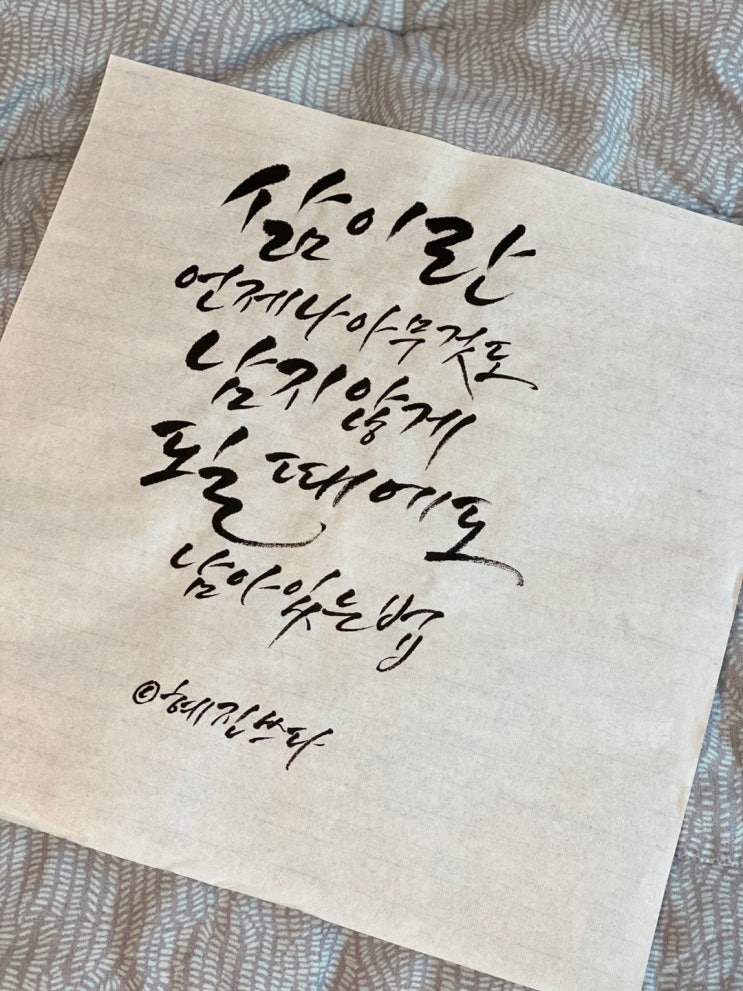 삶이란
언제나 아무것도
남지 않게
될 때에도
남아 있는 법
©혜진쓰다